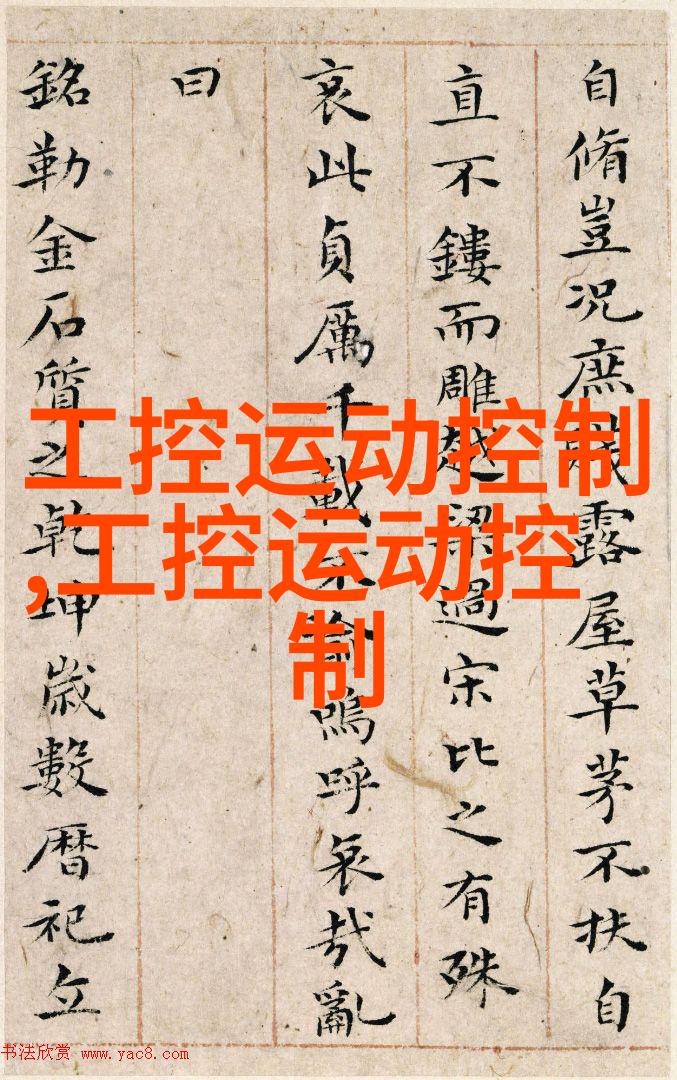 自脩豈況庶賤露屋草茅不扶自
直不鏤而雕越梁過宋比之有殊
哀此貞厲千載不渝嗚呼哀哉亂
曰
銘勒金石質之乾坤歲數暦祀立
工控运动控制
,工控运动控
制
书法欣赏 www.yac8.com